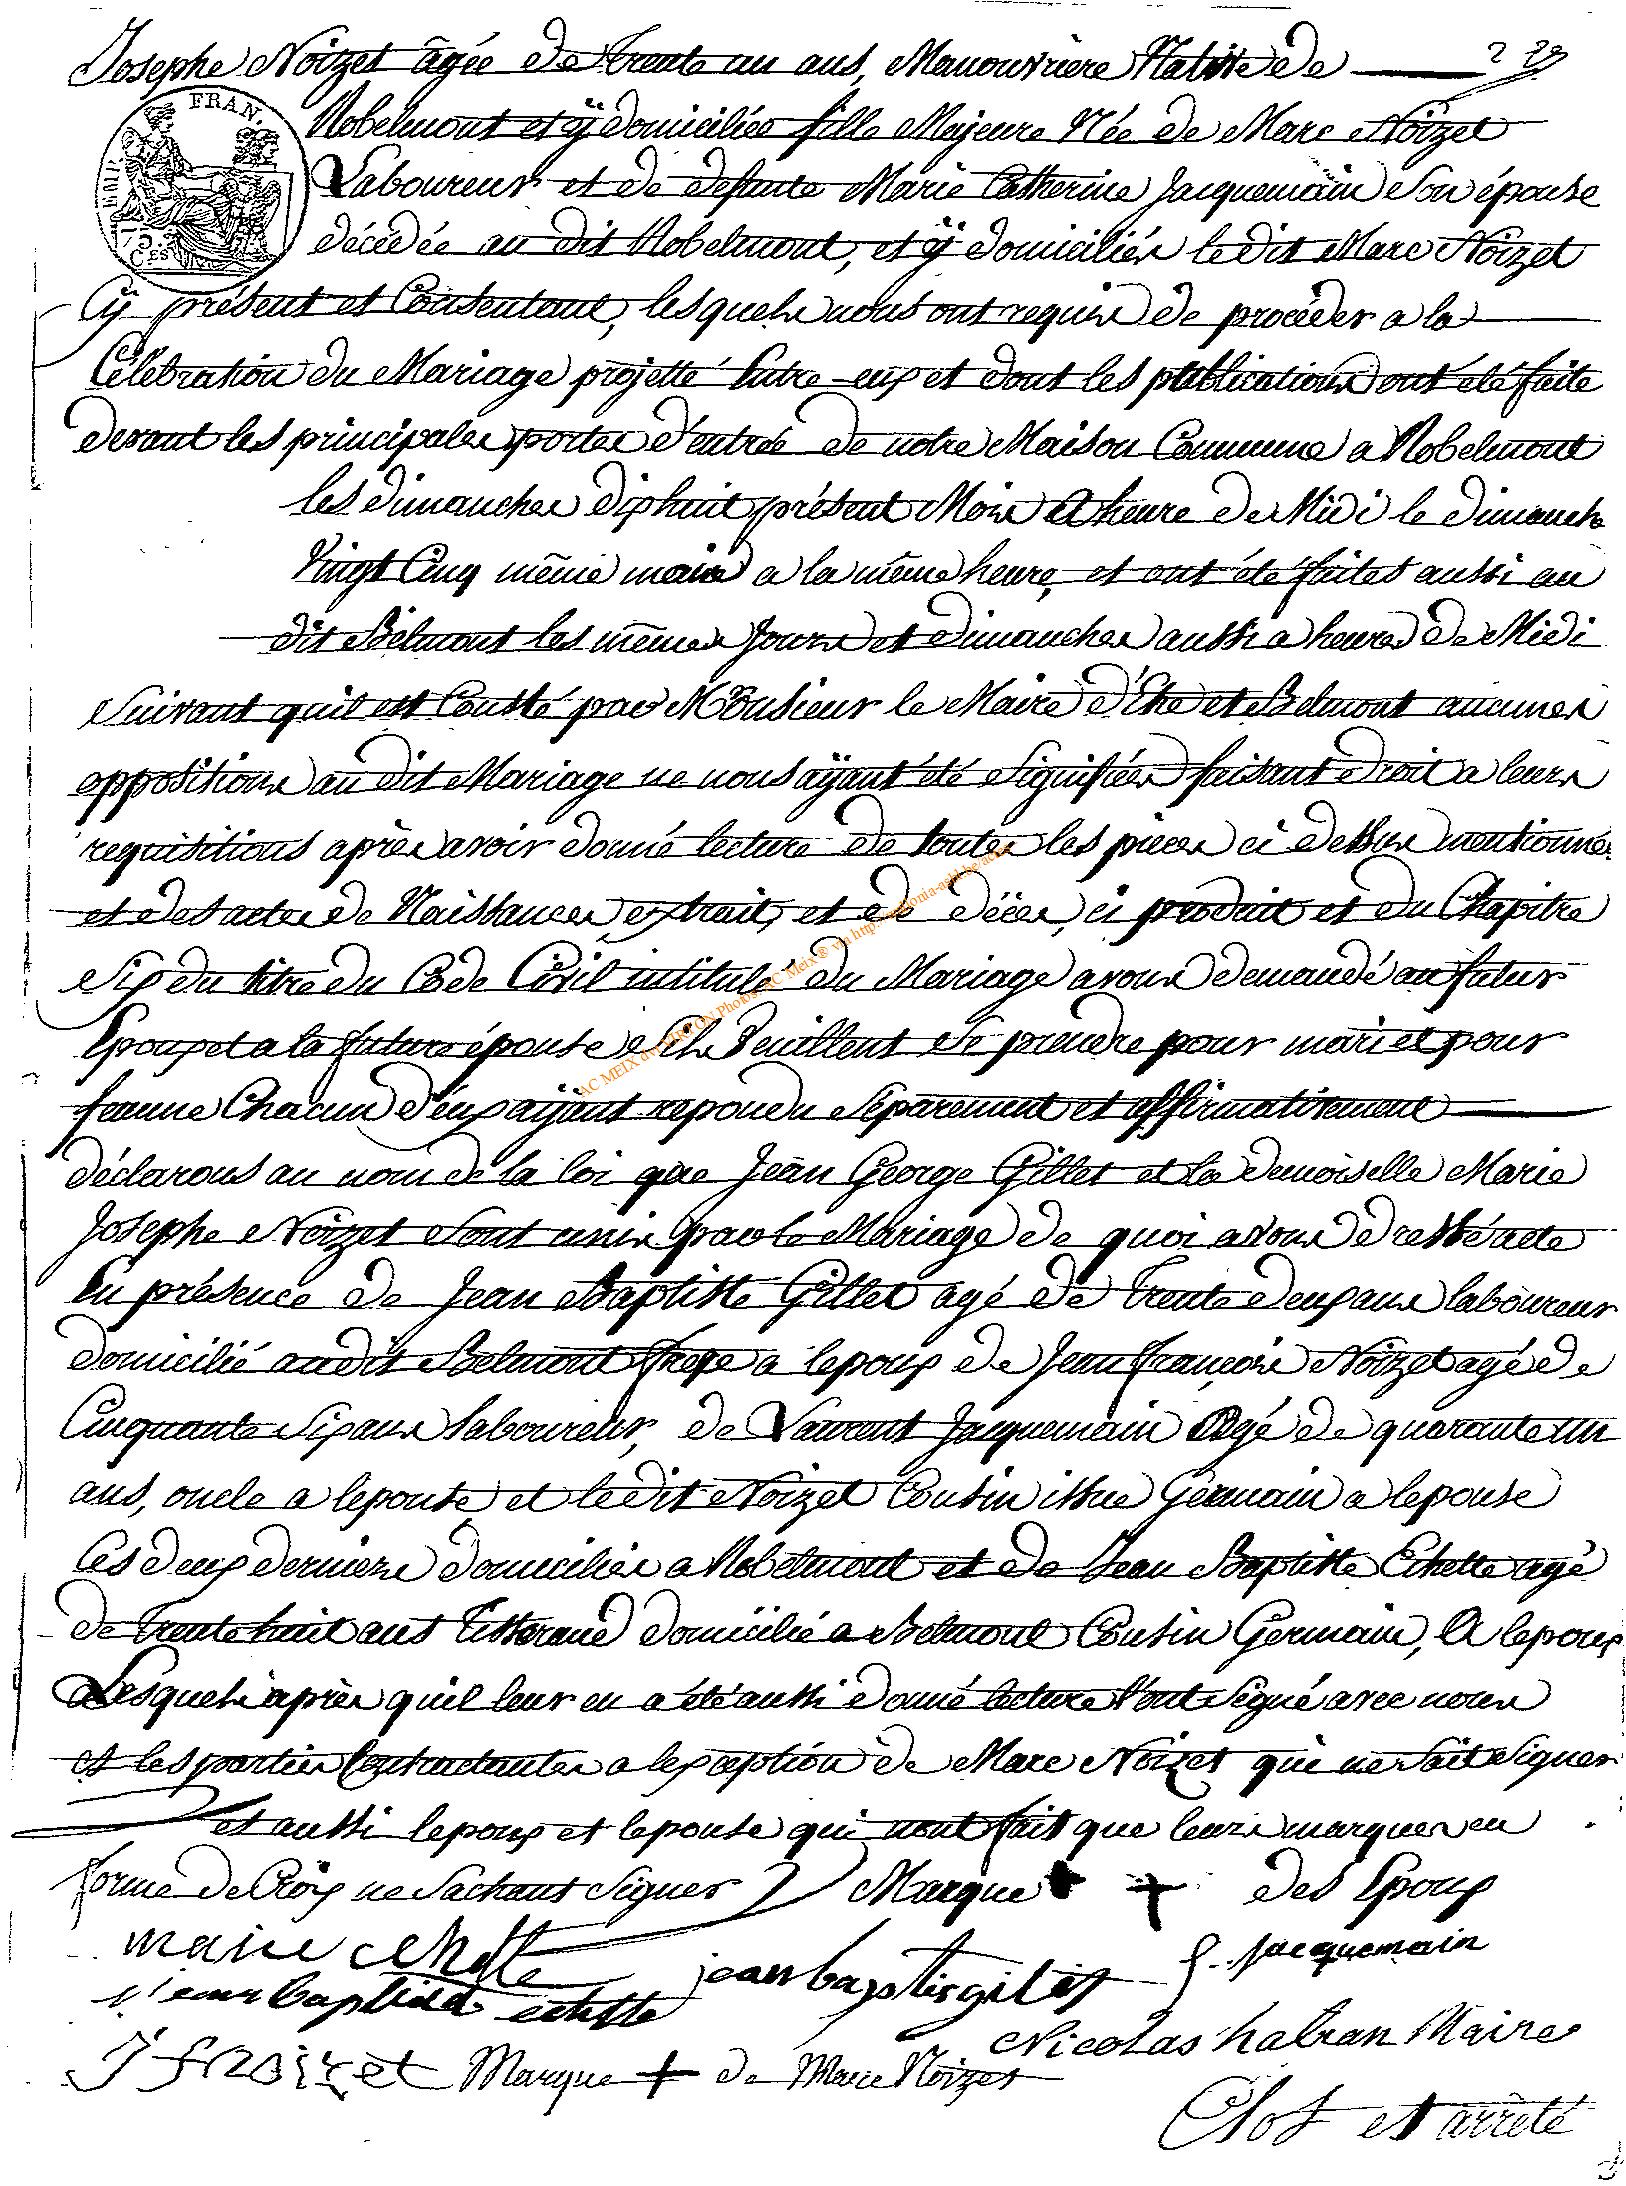 Josephe Noizet âgée de trente un ans, Manouvrière Native de
2 29
FRAN.
EMP.
75.
Ces
Robelmont et ÿ domiciliée fille Majeure Née de Marc Noizet
Laboureur et de defunte Marie Catherine Jacquemain Son épouse
décédée au dit Robelmont, et ÿ domiciliér le dit Marc Noizet
Cÿ présent et Consentant, lesquels nous ont requis de procéder a la
Célébration du Mariage projetté Entre-eux et dont les publications ont été faite
devant les principales portes d'entrée de notre Maison Commune a Robelmont
les dimanches dixhuit présent Mois a heure de Midi le dimanche
Vingt Cinq même mois a la même heure, et ont été faites aussi au
dit Belmont les mêmes Jours et dimanches aussi a heure de Midi
Suivant quil est Consté par Monsieur le Maire d'Ethe et Belmont aucunes
oppositions au dit Mariage ne nous aÿant été Signifiées faisant droit a leurs
requisitions après avoir donné lecture de toutes les pièces ci dessus mentionnés
et des actes de Naissances, extrait, et de décès, ci produit et du Chapitre
Six du titre du Code Civil intitulé du Mariage avons demandé au futur
Epoux et a la future épouse S'ils Veuillent Se prendre pour mari et pour
femme Chacun d'eux aÿant repondu Séparement et affirmativement
déclarons au nom de la loi que Jean George Gillet et la demoiselle Marie
Josephe Noizet Sont unis par le Mariage de quoi avons dressé acte
En présence de Jean Baptiste Gillet agé de trente deux ans laboureur
domicilié audit Belmont frere a lepoux de Jean françois Noizet agé de
Cinquante Six ans laboureur, de Laurent Jacquemain Agé de quarante un
ans, oncle a lepouse, et le dit Noizet Cousin issue Germain a lepouse
Ces deux derniers domiciliés a Robelmont et de Jean Baptiste Echette agé
de trente huit ans tisserand domicilié a Belmont Cousin Germain, A lepoux
Lesquels après quil leur en a été aussi donné lecture l'ont Signé avec nous
et les parties Contractantes a lexception de Marc Noizet qui ne Sait Signer
et aussi lepoux et lepouse qui nont fait que leurs marques en
forme de Croix ne Sachant Signer Marque + des Epoux
jean baptis gilet
Jacquemain
jean baptiste echette
Nicolas habran Maire
J f noizet Marque + de Marc Noizet
Clos et arreté